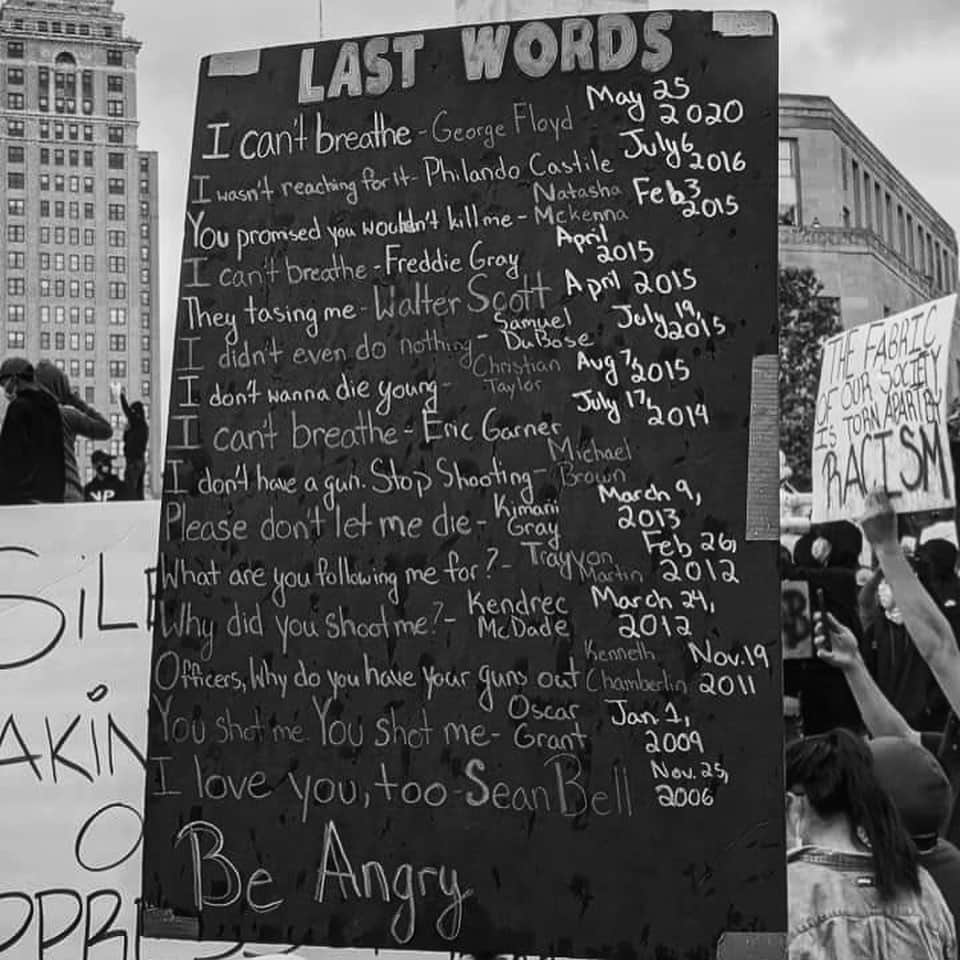 LAST WORDS
I can't breathe - George Floyd May 25 2020
I wasn't reaching for it - Philando Castile July 6 2016
You promised you wouldn't kill me - Natasha Mckenna Feb 3 2015
I can't breathe - Freddie Gray April 2015
They tasing me - Walter Scott April 2015
I didn't even do nothing - Samuel DuBose July 19, 2015
I don't wanna die young - Christian Taylor Aug 7, 2015
I can't breathe - Eric Garner July 17, 2014
I don't have a gun. Stop Shooting - Michael Brown
Please don't let me die - Kimani Gray March 9, 2013
What are you following me for? - Trayvon Martin Feb 26, 2012
Why did you shoot me? - Kendrec McDade March 24, 2012
Officers, Why do you have your guns out Kenneth Chamberlin Nov. 19 2011
You shot me You shot me - Oscar Grant Jan 1, 2009
I love you, too - Sean Bell Nov. 25, 2006
Be Angry
THE FABRIC
OF OUR SOCIETY
IS TORN APART BY
RACISM
SiL
AKiN
O
PPR